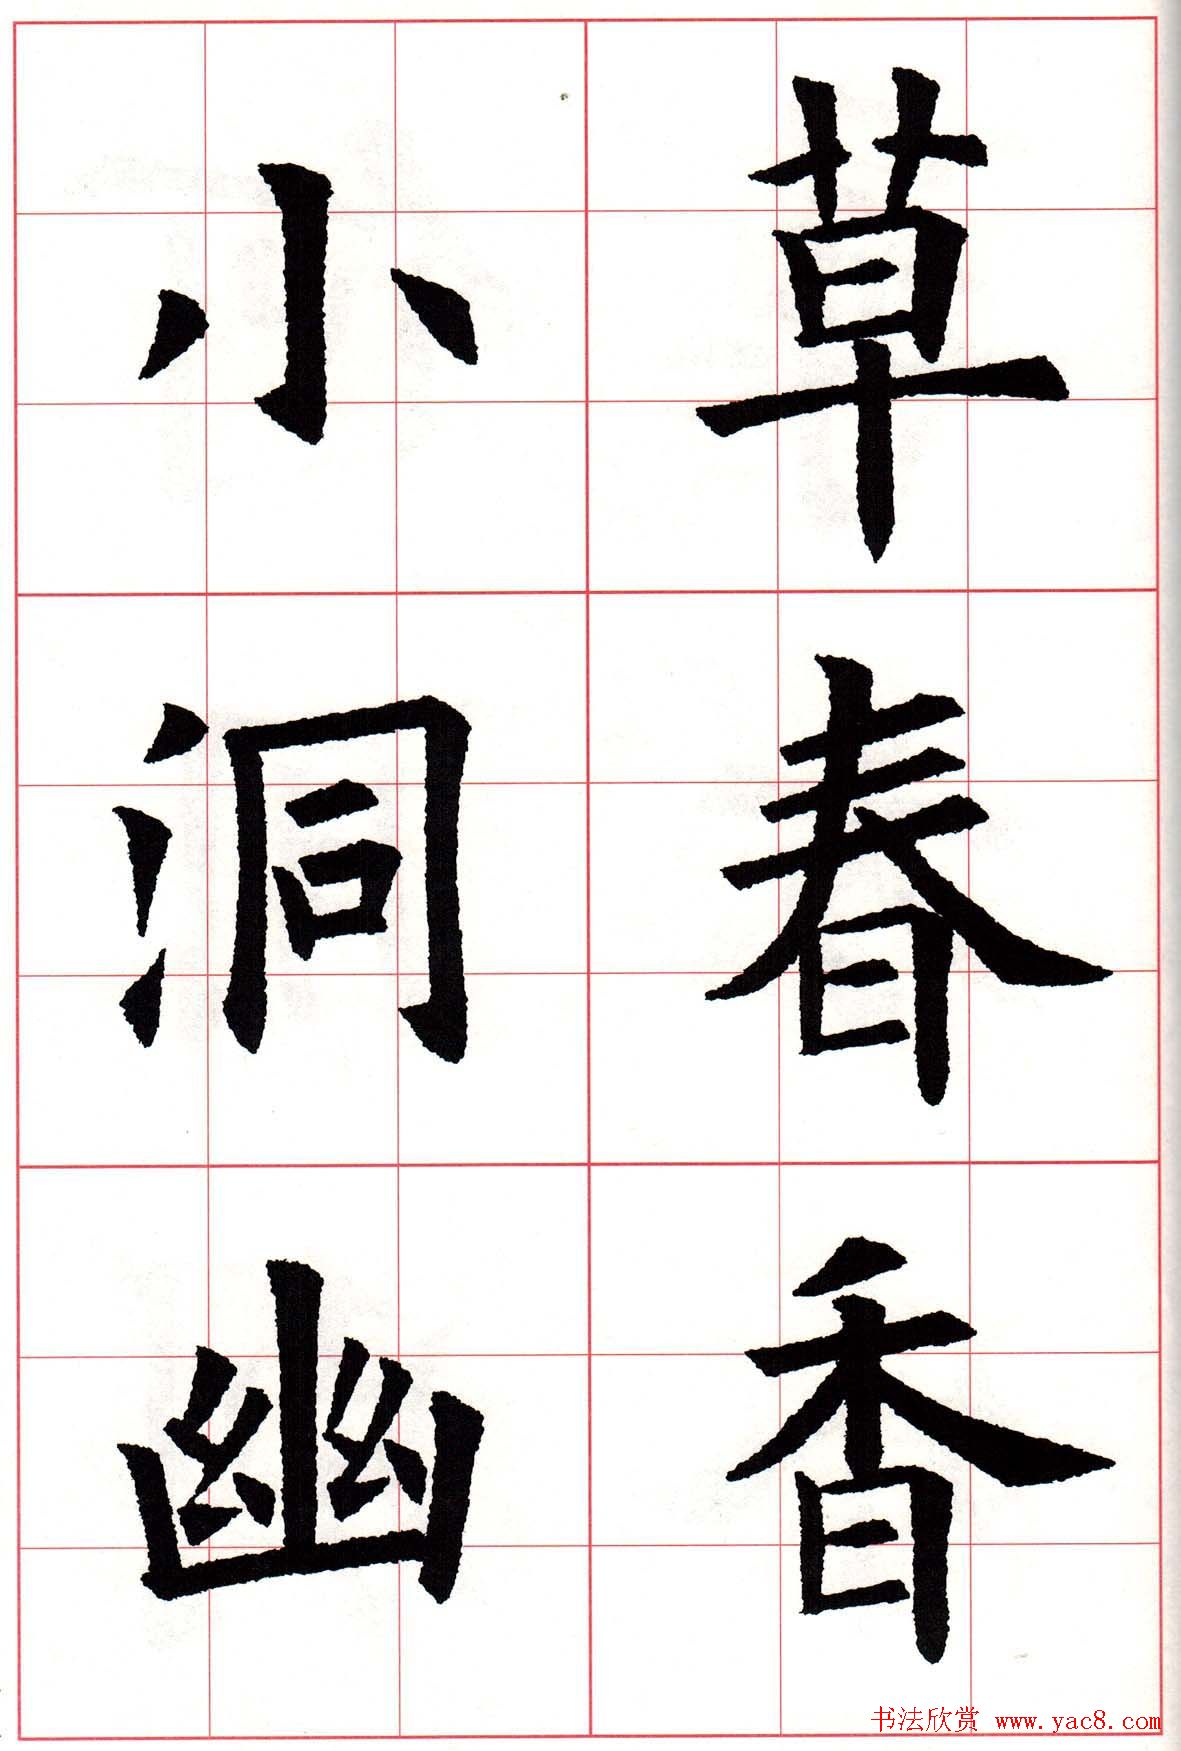 草春香
小洞幽
书法欣赏 www.yac8.com